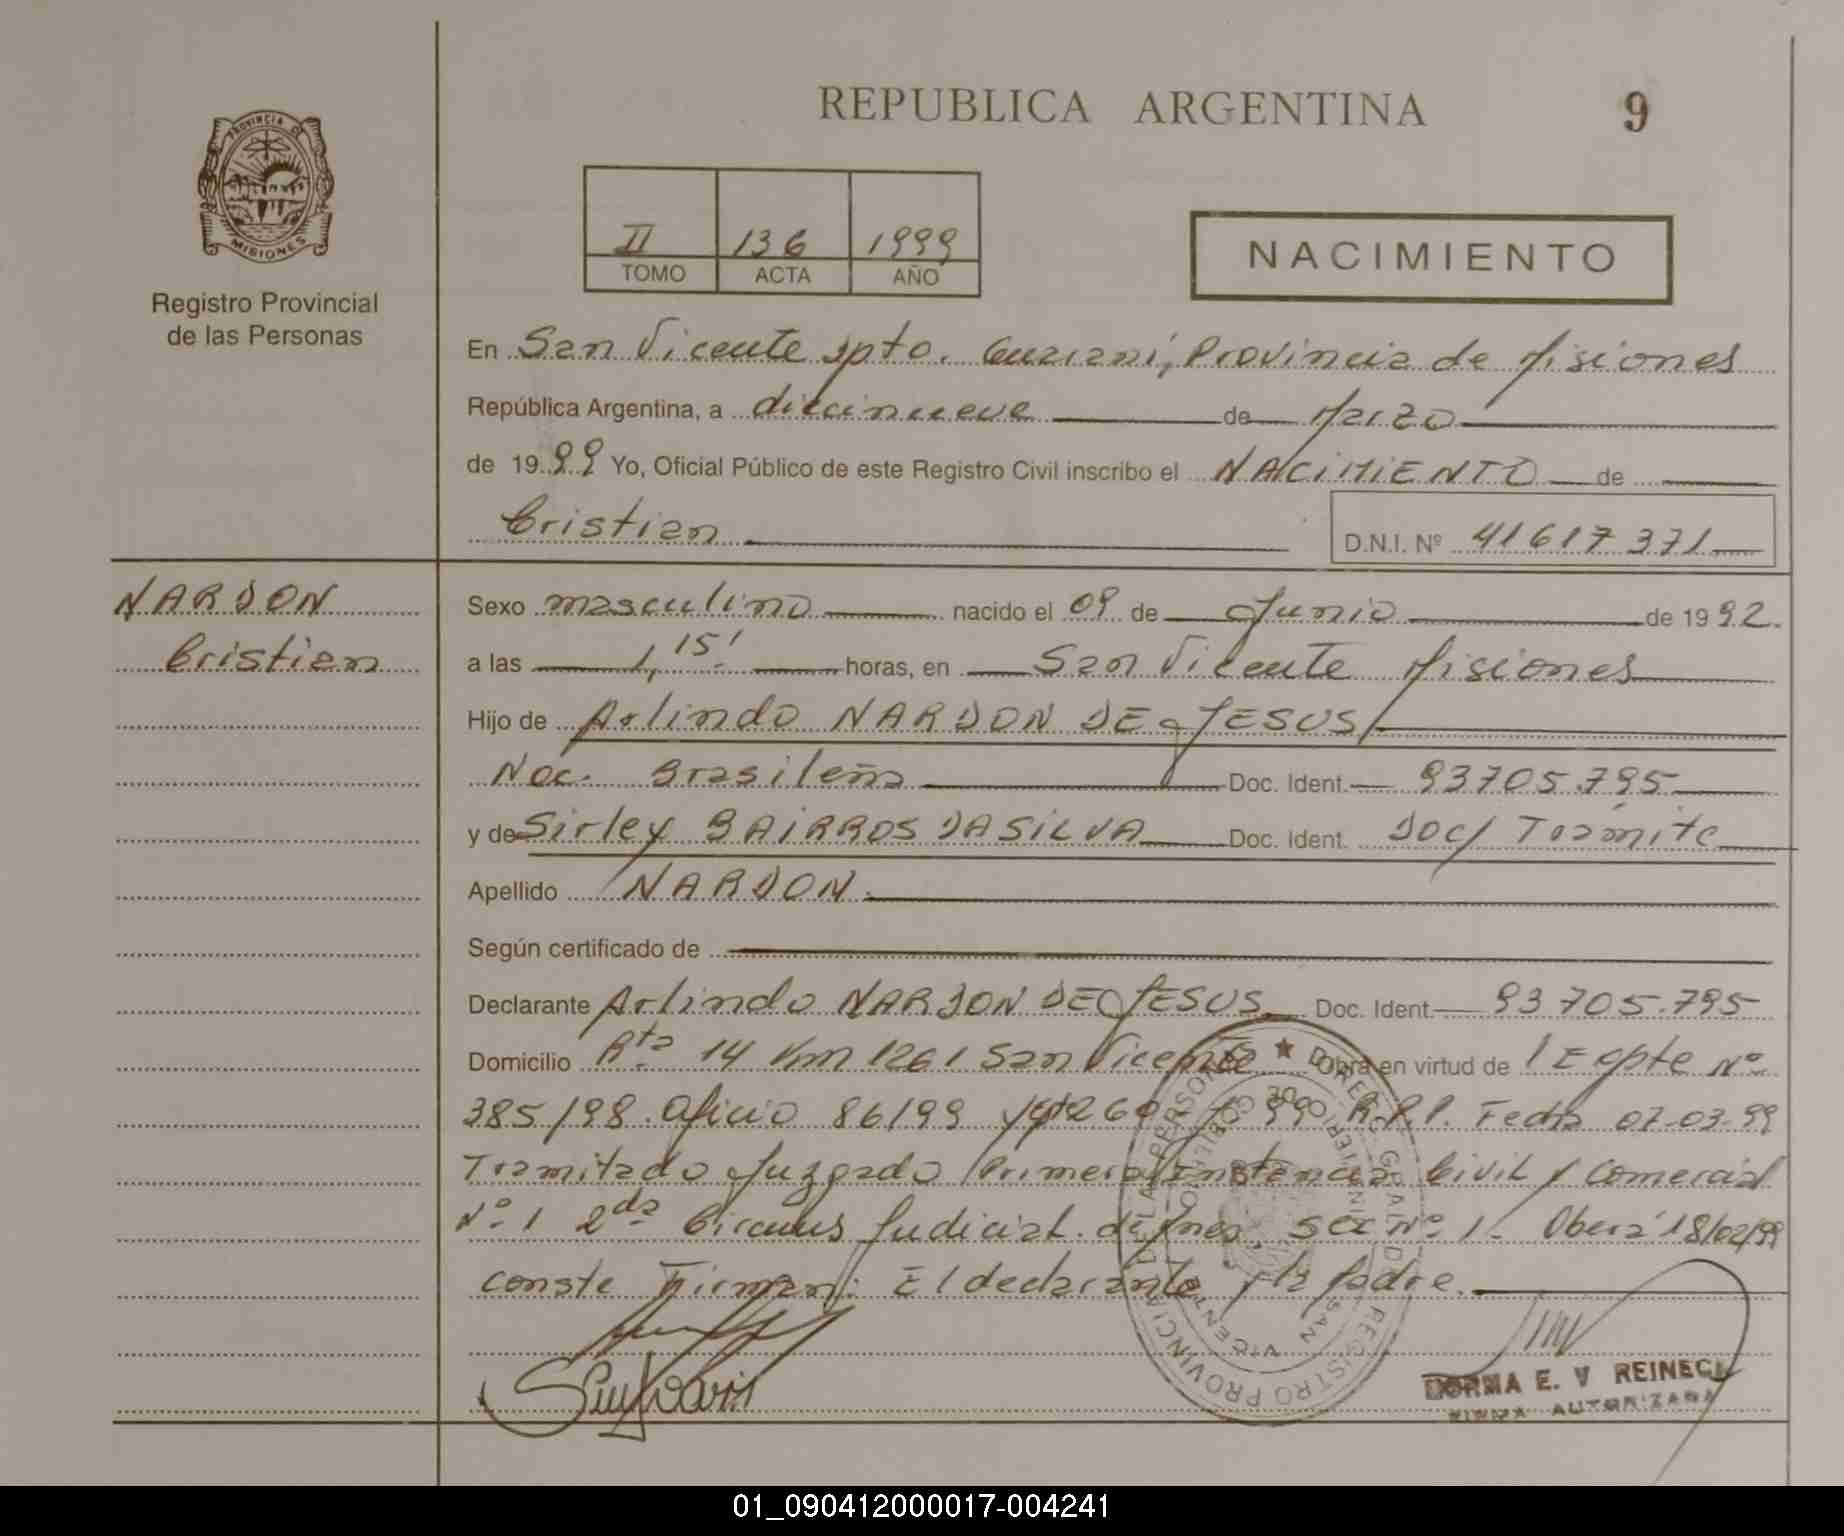 REPUBLICA ARGENTINA
9
PROVINCIA DE
MISIONES
Registro Provincial
de las Personas
II 136 1999
TOMO ACTA AÑO
NACIMIENTO
En San Vicente Dpto. Guarani, Provincia de Misiones
República Argentina, a diecinueve de Marzo
de 1999 Yo, Oficial Público de este Registro Civil inscribo el NACIMIENTO de
Cristian
D.N.I. Nº 41617371
NARDON
Cristian
Sexo masculino nacido el 09 de Junio de 1992.
a las 1,15' horas, en San Vicente Misiones
Hijo de Arlindo NARDON DE JESUS
Nac. Brasileña Doc. Ident. 93705.795
y de Sirley BAIRROS DA SILVA Doc. Ident. Doc/ Trámite
Apellido NARDON.
Según certificado de
Declarante Arlindo NARDON DE JESUS Doc. Ident. 93705.795
Domicilio Rta 14 Km 1261 San Vicente Obra en virtud de Expte Nº
385/98. Oficio 86/99 R.P.P. Fecha 07-03-99
Tramitado Juzgado Primera Instancia Civil y Comercial
Nº 1 2da Circuns Judicial. de Mnes. Sec Nº 1. Oberá 18/02/99
conste Firman: El declarante y la Padre.
REGISTRO PROVINCIAL DE LAS PERSONAS ★ DIREC. GRAL. DEL
SAN VICENTE
NORMA E. V REINECK
FIRMA AUTORIZADA
01_090412000017-004241